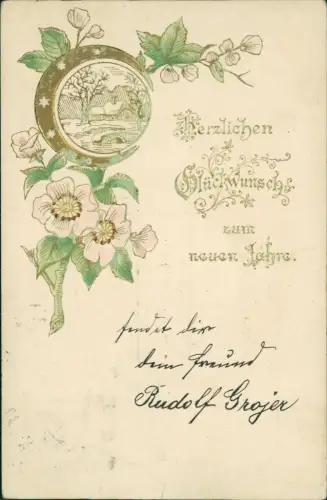 Herzlichen
Glückwunsch
zum
neuen Jahre.
sendet dir
dein Freund
Rudolf Grojer